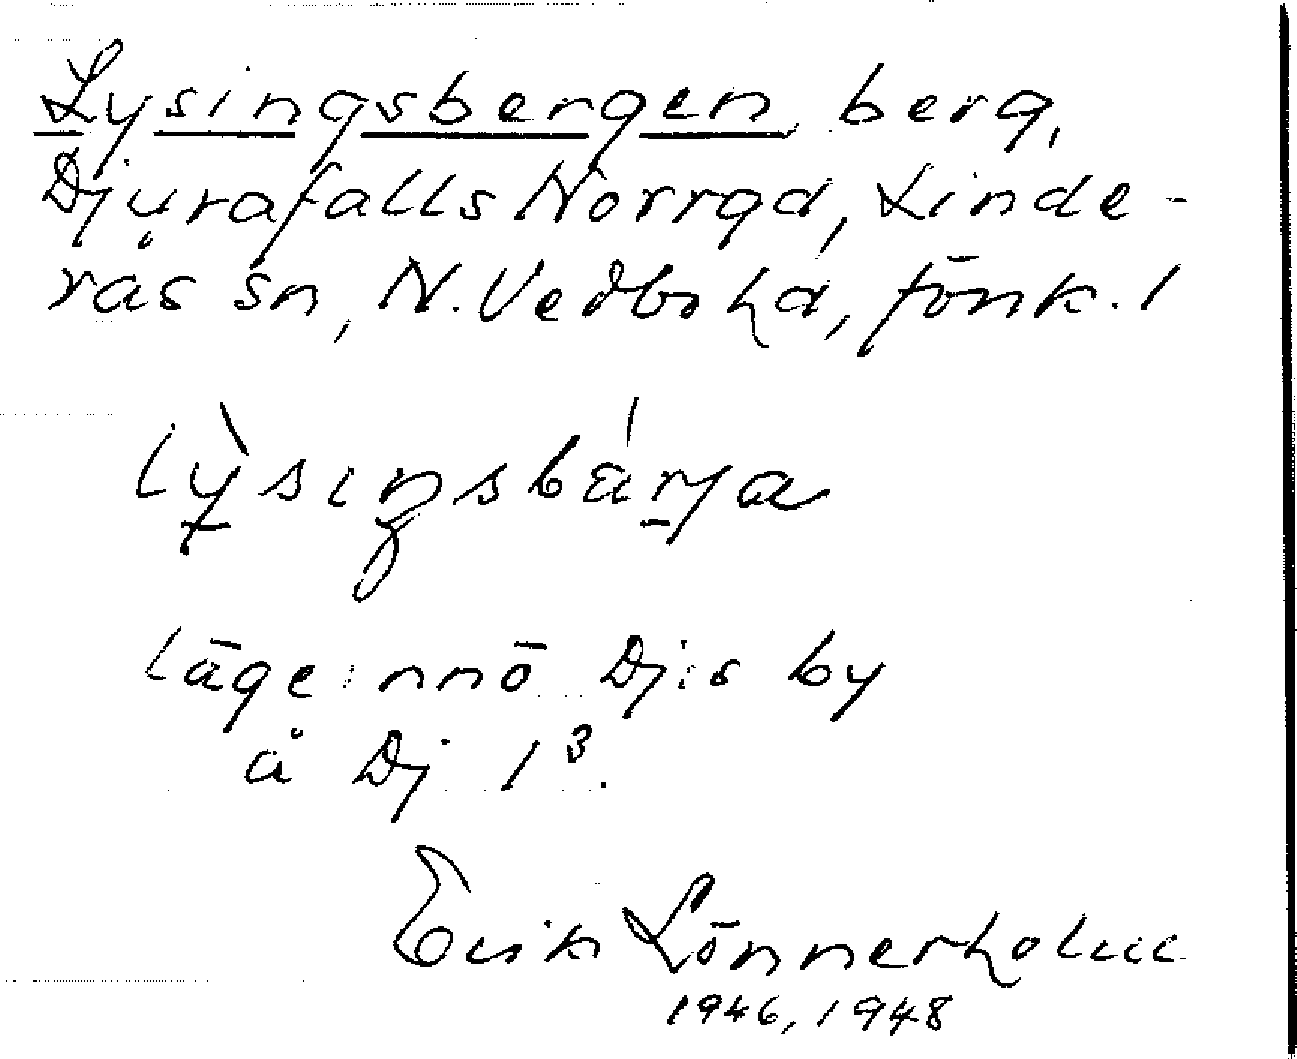 Lysingsbergen berg,
Djurafalls Norrgd, Linde-
rås sn, N. Vedbo hd, Jönk. l
lỳsıŋsbárja
läge: nnö Dj:s by
å Dj 1³.
Erik Lönnerholm
1946, 1948